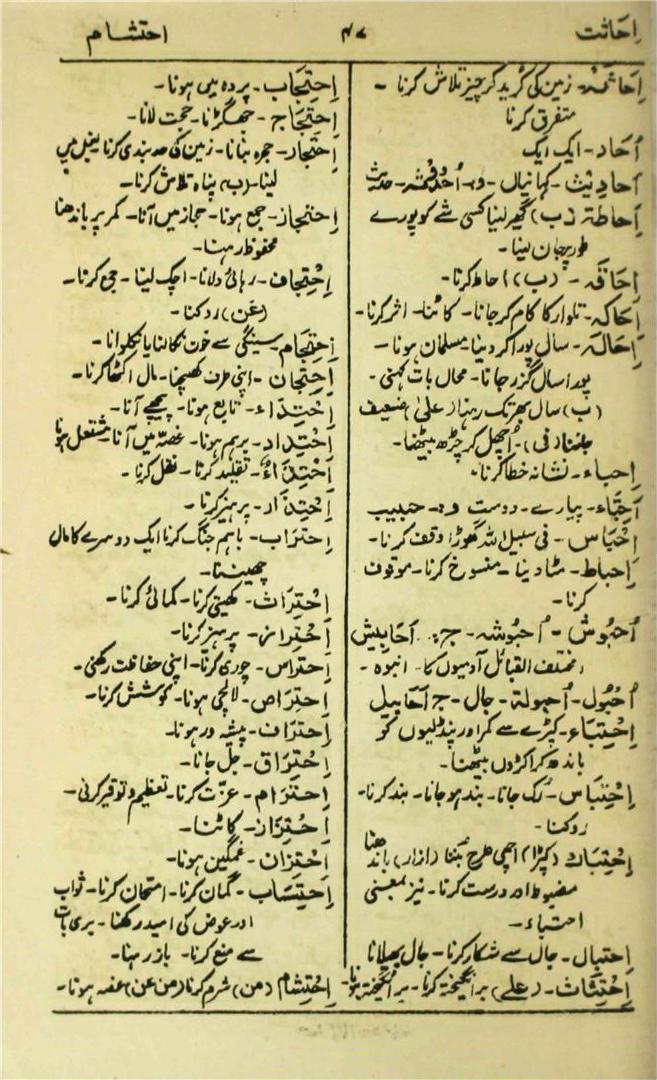 اِحَاثت ۴۷ احتشام
اِحَاثَۃ۔ زمین کی کُرید کر چیز تلاش کرنا۔
متفرق کرنا
اُحَاد۔ ایک ایک
اَحَادِیْث۔ کہانیاں۔ و: اُحْدُوْثَہ۔ حدیث
اِحَاطَۃ (ب) گھیر لینا کسی شے کو پورے
طور پر جان لینا۔
اِحَافَہ۔ (ب) احاطہ کرنا۔
اِحَاکہ۔ تلوار کا کام کر جانا۔ کاٹنا۔ اثر کرنا۔
اِحَالَہ۔ سال پورا کر دینا۔ مسلمان ہونا۔
پورا سال گزر جانا۔ محال بات کہنی۔
(ب) سال بھر تک رہنا (علیٰ) ضعیف
جاننا (فی)۔ اُچھل کر چڑھ بیٹھنا۔
اِحباء۔ نشانہ خطا کرنا۔
اَحِبَّاء۔ پیارے۔ دوست و: حَبیب
اِحْبَاس۔ فی سبیل اللہ گھوڑا وقف کرنا۔
اِحباط۔ مٹا دینا۔ منسوخ کرنا۔ موقوف
کرنا۔
اُحبُوش۔ اُحبُوشہ۔ ج: اَحَابِیش
مختلف القبائل آدمیوں کا۔ انبوہ۔
اُحْبُول۔ اُحبولۃ۔ جال۔ ج اَحَابِیل
اِحْتِبَاء۔ کپڑے سے کمر اور پنڈلیوں کو
باندھ کر اکڑوں بیٹھنا۔
اِحْتِبَاس۔ رُک جانا۔ بند ہو جانا۔ بند کرنا۔
روکنا۔
اِحْتِبَاک (کپڑا) اچھی طرح بُننا (ازار) باندھنا
مضبوط اور درست کرنا۔ نیز بمعنی
احتباء۔
اِحتبال۔ جال سے شکار کرنا۔ جال پھیلانا
اِحْتِثَاث۔ (علیٰ) برانگیختہ کرنا۔ برانگیختہ ہونا۔
اِحتِجَاب۔ پردہ میں ہونا۔
اِحْتِجَاج۔ جھگڑنا۔ حجت لانا۔
اِحْتِجَار۔ حجرہ بنانا۔ زمین کی حد بندی کرنا بغل میں
لینا۔ (ب) پناہ تلاش کرنا۔
اِحتجاز۔ جمع ہونا۔ حجاز میں آنا۔ کمر پر باندھنا
محفوظ رہنا۔
اِحْتِجاف۔ رہائی دلانا۔ اچک لینا۔ جمع کرنا۔
(عَن) روکنا۔
اِحتِجَام۔ سینگی سے خون نکالنا یا نکلوانا۔
اِحتِجَان۔ اپنی طرف کھینچنا۔ مال اکٹھا کرنا۔
اِحْتِدَاء۔ تابع ہونا۔ پیچھے آنا۔
اِحْتِداد۔ برہم ہونا۔ غصّہ میں آنا۔ مشتعل ہونا
اِحْتِذَاءٌ۔ تقلید کرنا۔ نقل کرنا۔
اِحْتِذَار۔ پرہیز کرنا۔
اِحتِرَاب۔ باہم جنگ کرنا ایک دوسرے کا مال
چھیننا۔
اِحْتِرَاث۔ کھیتی کرنا۔ کمائی کرنا۔
اِحْتِراز۔ پرہیز کرنا۔
اِحتراس۔ چوری کرنا۔ اپنی حفاظت رکھنی۔
اِحتِرَاص۔ لالچی ہونا۔ کوشش کرنا۔
اِحتِراف۔ پیشہ ور ہونا۔
اِحْتِرَاق۔ جل جانا۔
اِحتِرَام۔ عزّت کرنا۔ تعظیم و توقیر کرنی۔
اِحْتِزَاز۔ کاٹنا۔
اِحْتِزان۔ غمگین ہونا۔
اِحتِسَاب۔ گمان کرنا۔ امتحان کرنا۔ ثواب
اور عوض کی امید رکھنا۔ بری بات
سے منع کرنا۔ باز رہنا۔
اِحْتِشام (مِن) شرم کرنا (مِن عن) غصہ ہونا۔